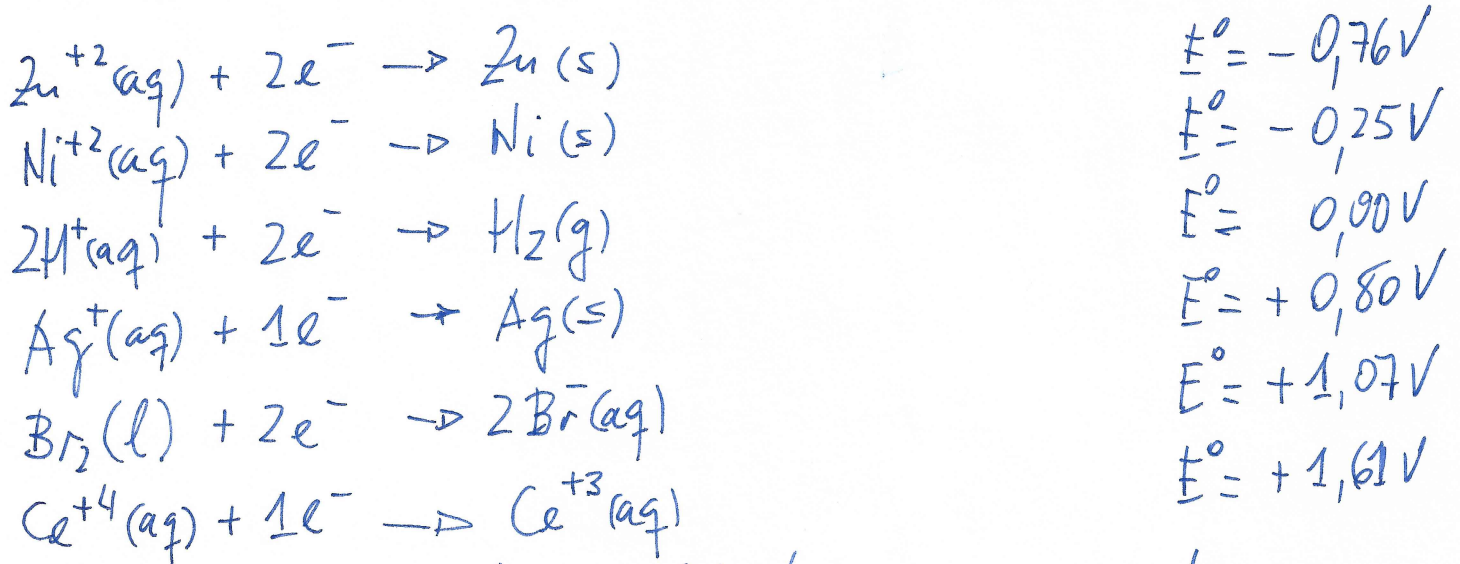 Zn⁺²(aq) + 2e⁻ → Zn(s) E⁰ = - 0,76V
Ni⁺²(aq) + 2e⁻ → Ni(s) E⁰ = - 0,25V
2H⁺(aq) + 2e⁻ → H₂(g) E⁰ = 0,00V
Ag⁺(aq) + 1e⁻ → Ag(s) E⁰ = + 0,80V
Br₂(l) + 2e⁻ → 2Br⁻(aq) E⁰ = +1,07V
Ce⁺⁴(aq) + 1e⁻ → Ce⁺³(aq) E⁰ = +1,61V